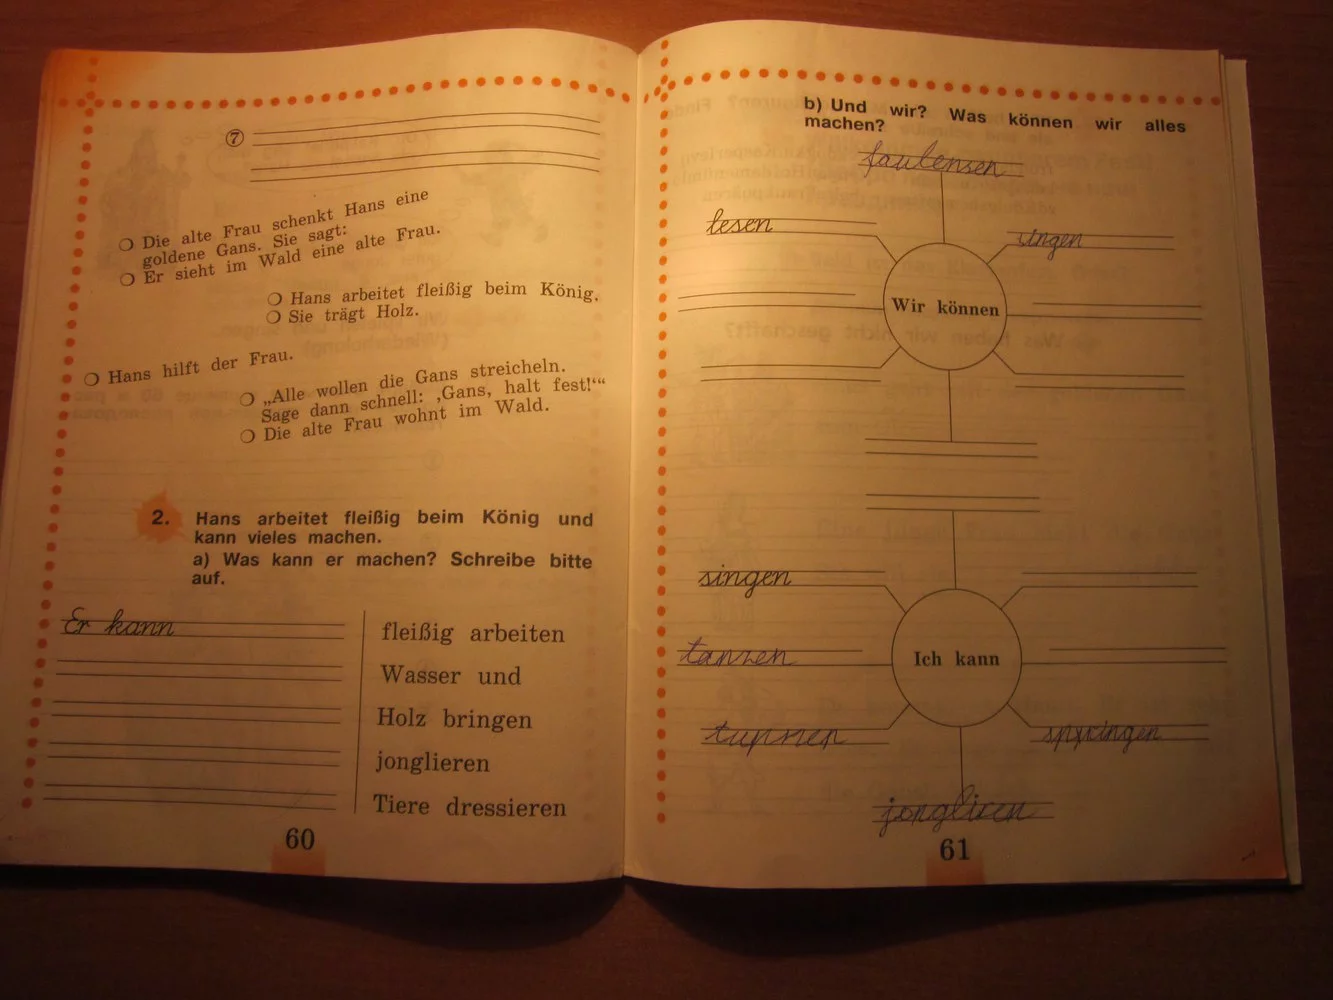 7
Die alte Frau schenkt Hans eine
goldene Gans. Sie sagt:
Er sieht im Wald eine alte Frau.
Hans arbeitet fleißig beim König.
Sie trägt Holz.
Hans hilft der Frau.
„Alle wollen die Gans streicheln.
Sage dann schnell: ‚Gans, halt fest!‘“
Die alte Frau wohnt im Wald.
2. Hans arbeitet fleißig beim König und
kann vieles machen.
a) Was kann er machen? Schreibe bitte
auf.
Er kann
fleißig arbeiten
Wasser und
Holz bringen
jonglieren
Tiere dressieren
60
b) Und wir? Was können wir alles
machen?
faulensen
lesen
singen
Wir können
singen
Ich kann
tanzen
turnen
springen
jonglieren
61